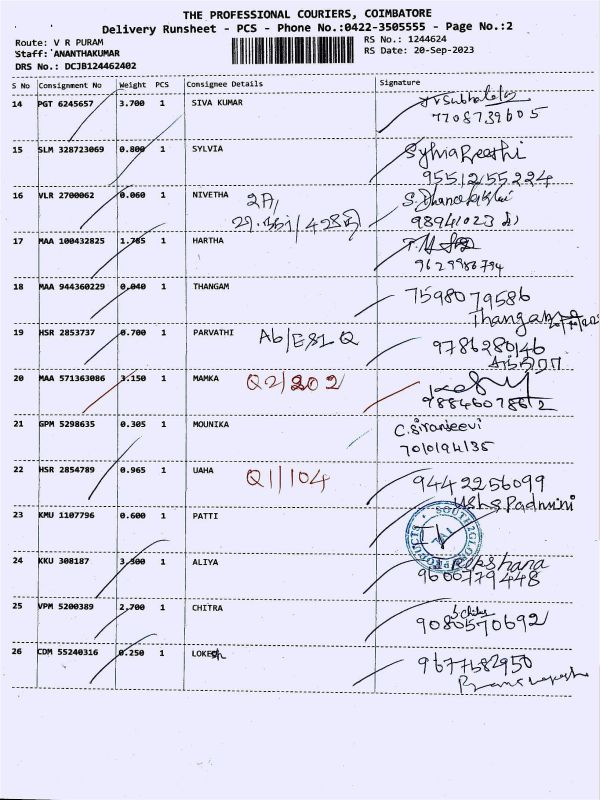 THE PROFESSIONAL COURIERS, COIMBATORE
Delivery Runsheet - PCS - Phone No.:0422-3505555 - Page No.:2
Route: V R PURAM
RS No.: 1244624
Staff: ANANTHAKUMAR
RS Date: 20-Sep-2023
DRS No.: DCJB124462402
S No Consignment No Weight PCS Consignee Details Signature
14 PGT 6245657 3.700 1 SIVA KUMAR
7708739605
15 SLM 328723069 0.800 1 SYLVIA Sylvia Preethi
9551215 5224
16 VLR 2700062 0.060 1 NIVETHA 2A,
17 MAA 100432825 1.765 1 HARTHA
9629986794
18 MAA 944360229 0.040 1 THANGAM 7598079586
Thangam
19 HSR 2853737 0.700 1 PARVATHI Ab/ESI Q 9786280146
20 MAA 571363086 3.150 1 MAMKA Q2/202
9884607862
21 GPM 5298635 0.305 1 MOUNIKA C.Siranjeevi
7010194135
22 HSR 2854789 0.965 1 UAHA Q1/104 9442256099
Usha Padmini
23 KMU 1107796 0.600 1 PATTI
24 KKU 308187 3.300 1 ALIYA Rakshana
9600779448
25 VPM 5200389 2.700 1 CHITRA
9080570692
26 CDM 55240316 0.250 1 LOKESH 9677582950